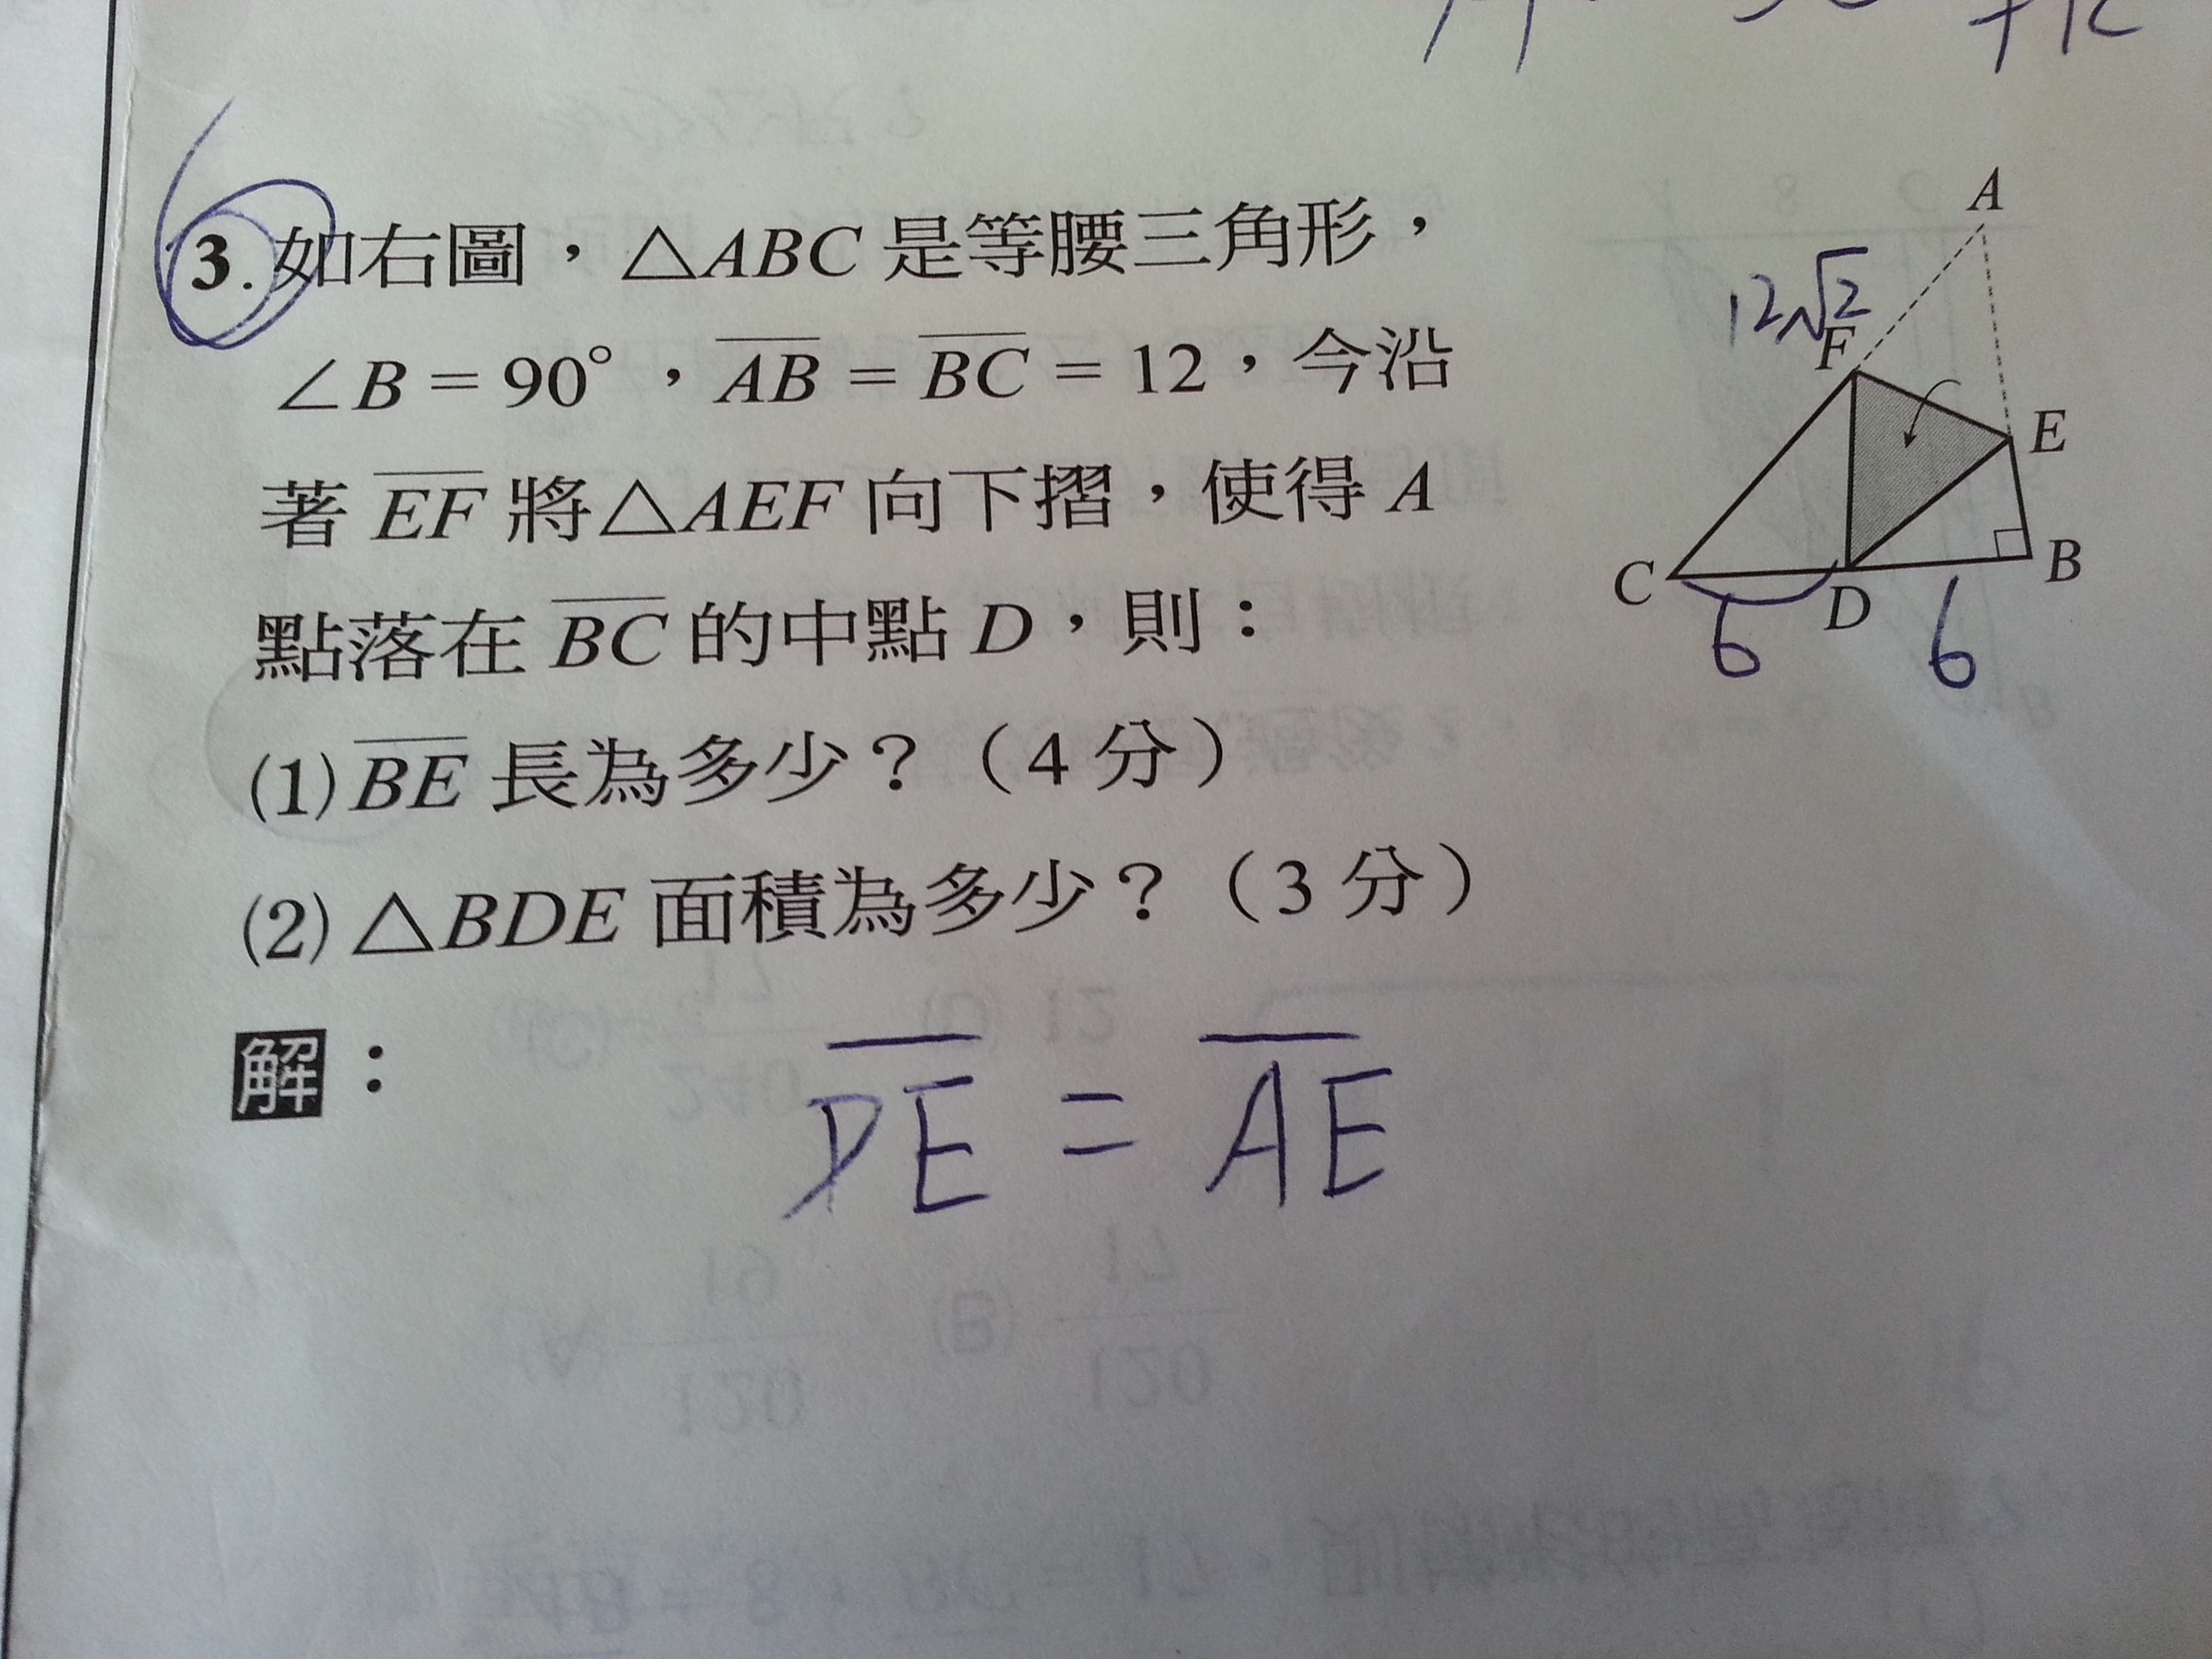 3. 如右圖，△ABC 是等腰三角形，
∠B = 90°，AB = BC = 12，今沿
著 EF 將△AEF 向下摺，使得 A
點落在 BC 的中點 D，則：
(1) BE 長為多少？（4 分）
(2) △BDE 面積為多少？（3 分）
解：
DE = AE
A
12√2
F
E
C
D
B
6
6